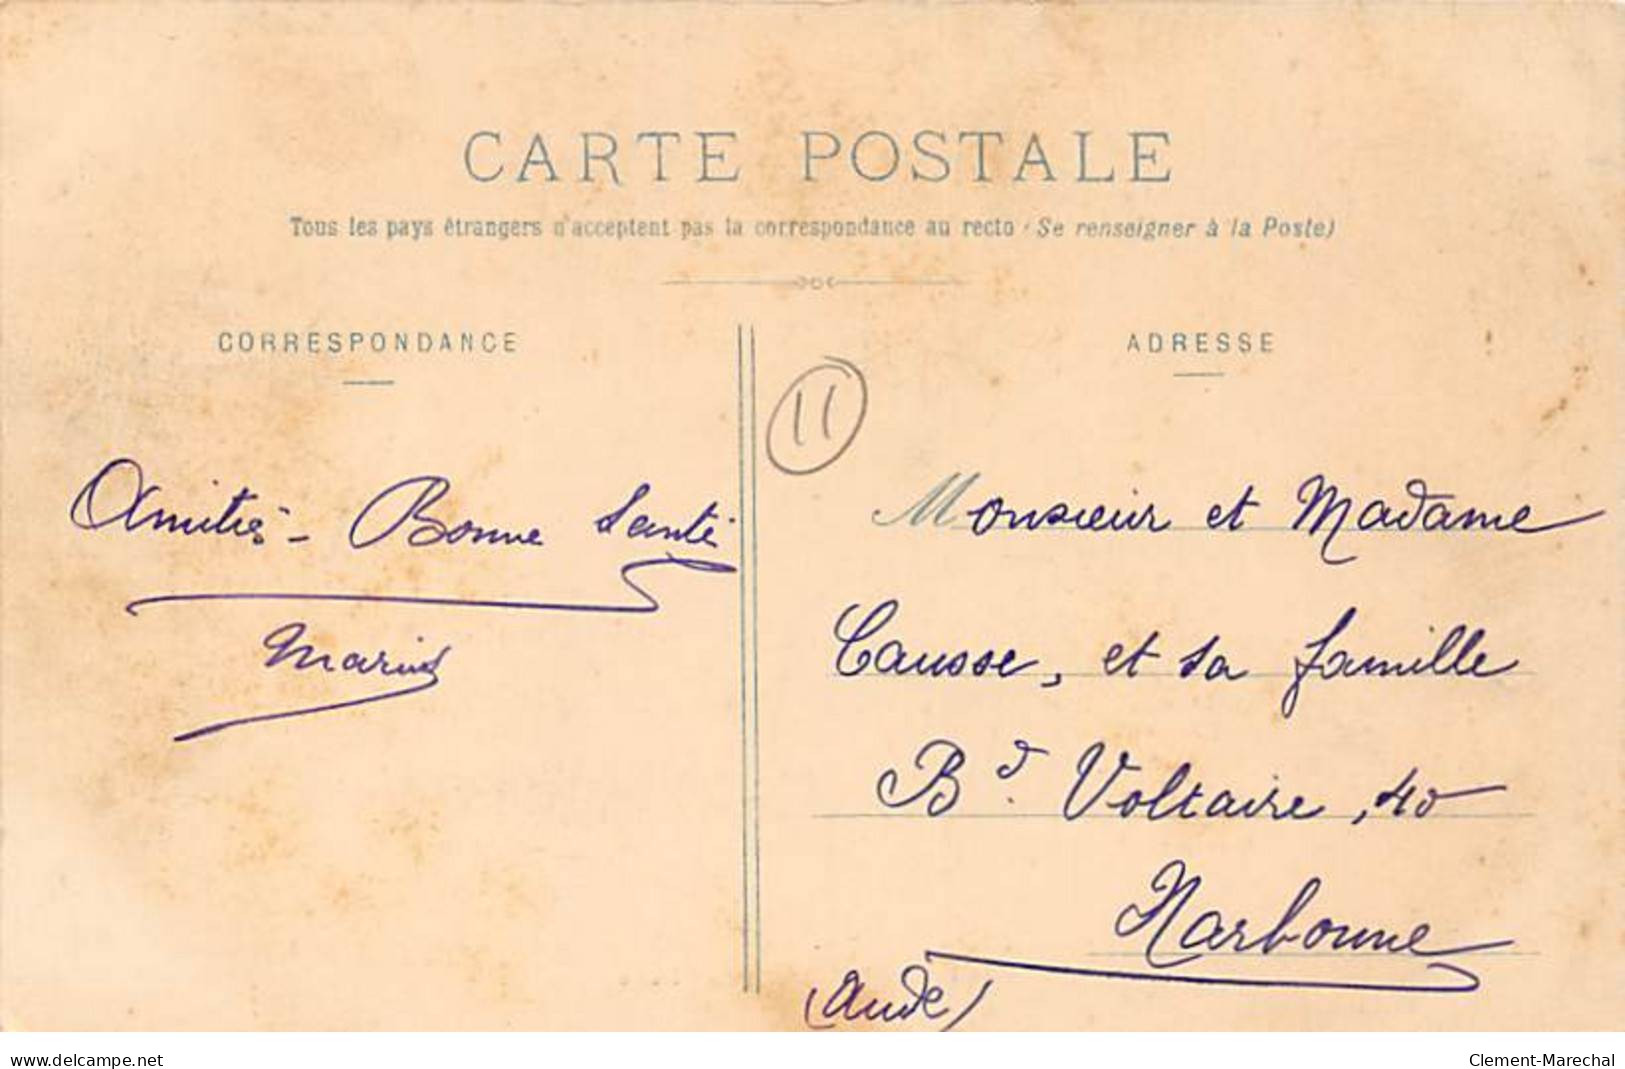 CARTE POSTALE
Tous les pays étrangers n'acceptent pas la correspondance au recto (Se renseigner à la Poste)
CORRESPONDANCE
Amitiés - Bonne Santé
Marius
ADRESSE
11
Monsieur et Madame
Causse, et sa famille
Bd. Voltaire, 40
Narbonne
(Aude)
www.delcampe.net
Clement-Marechal